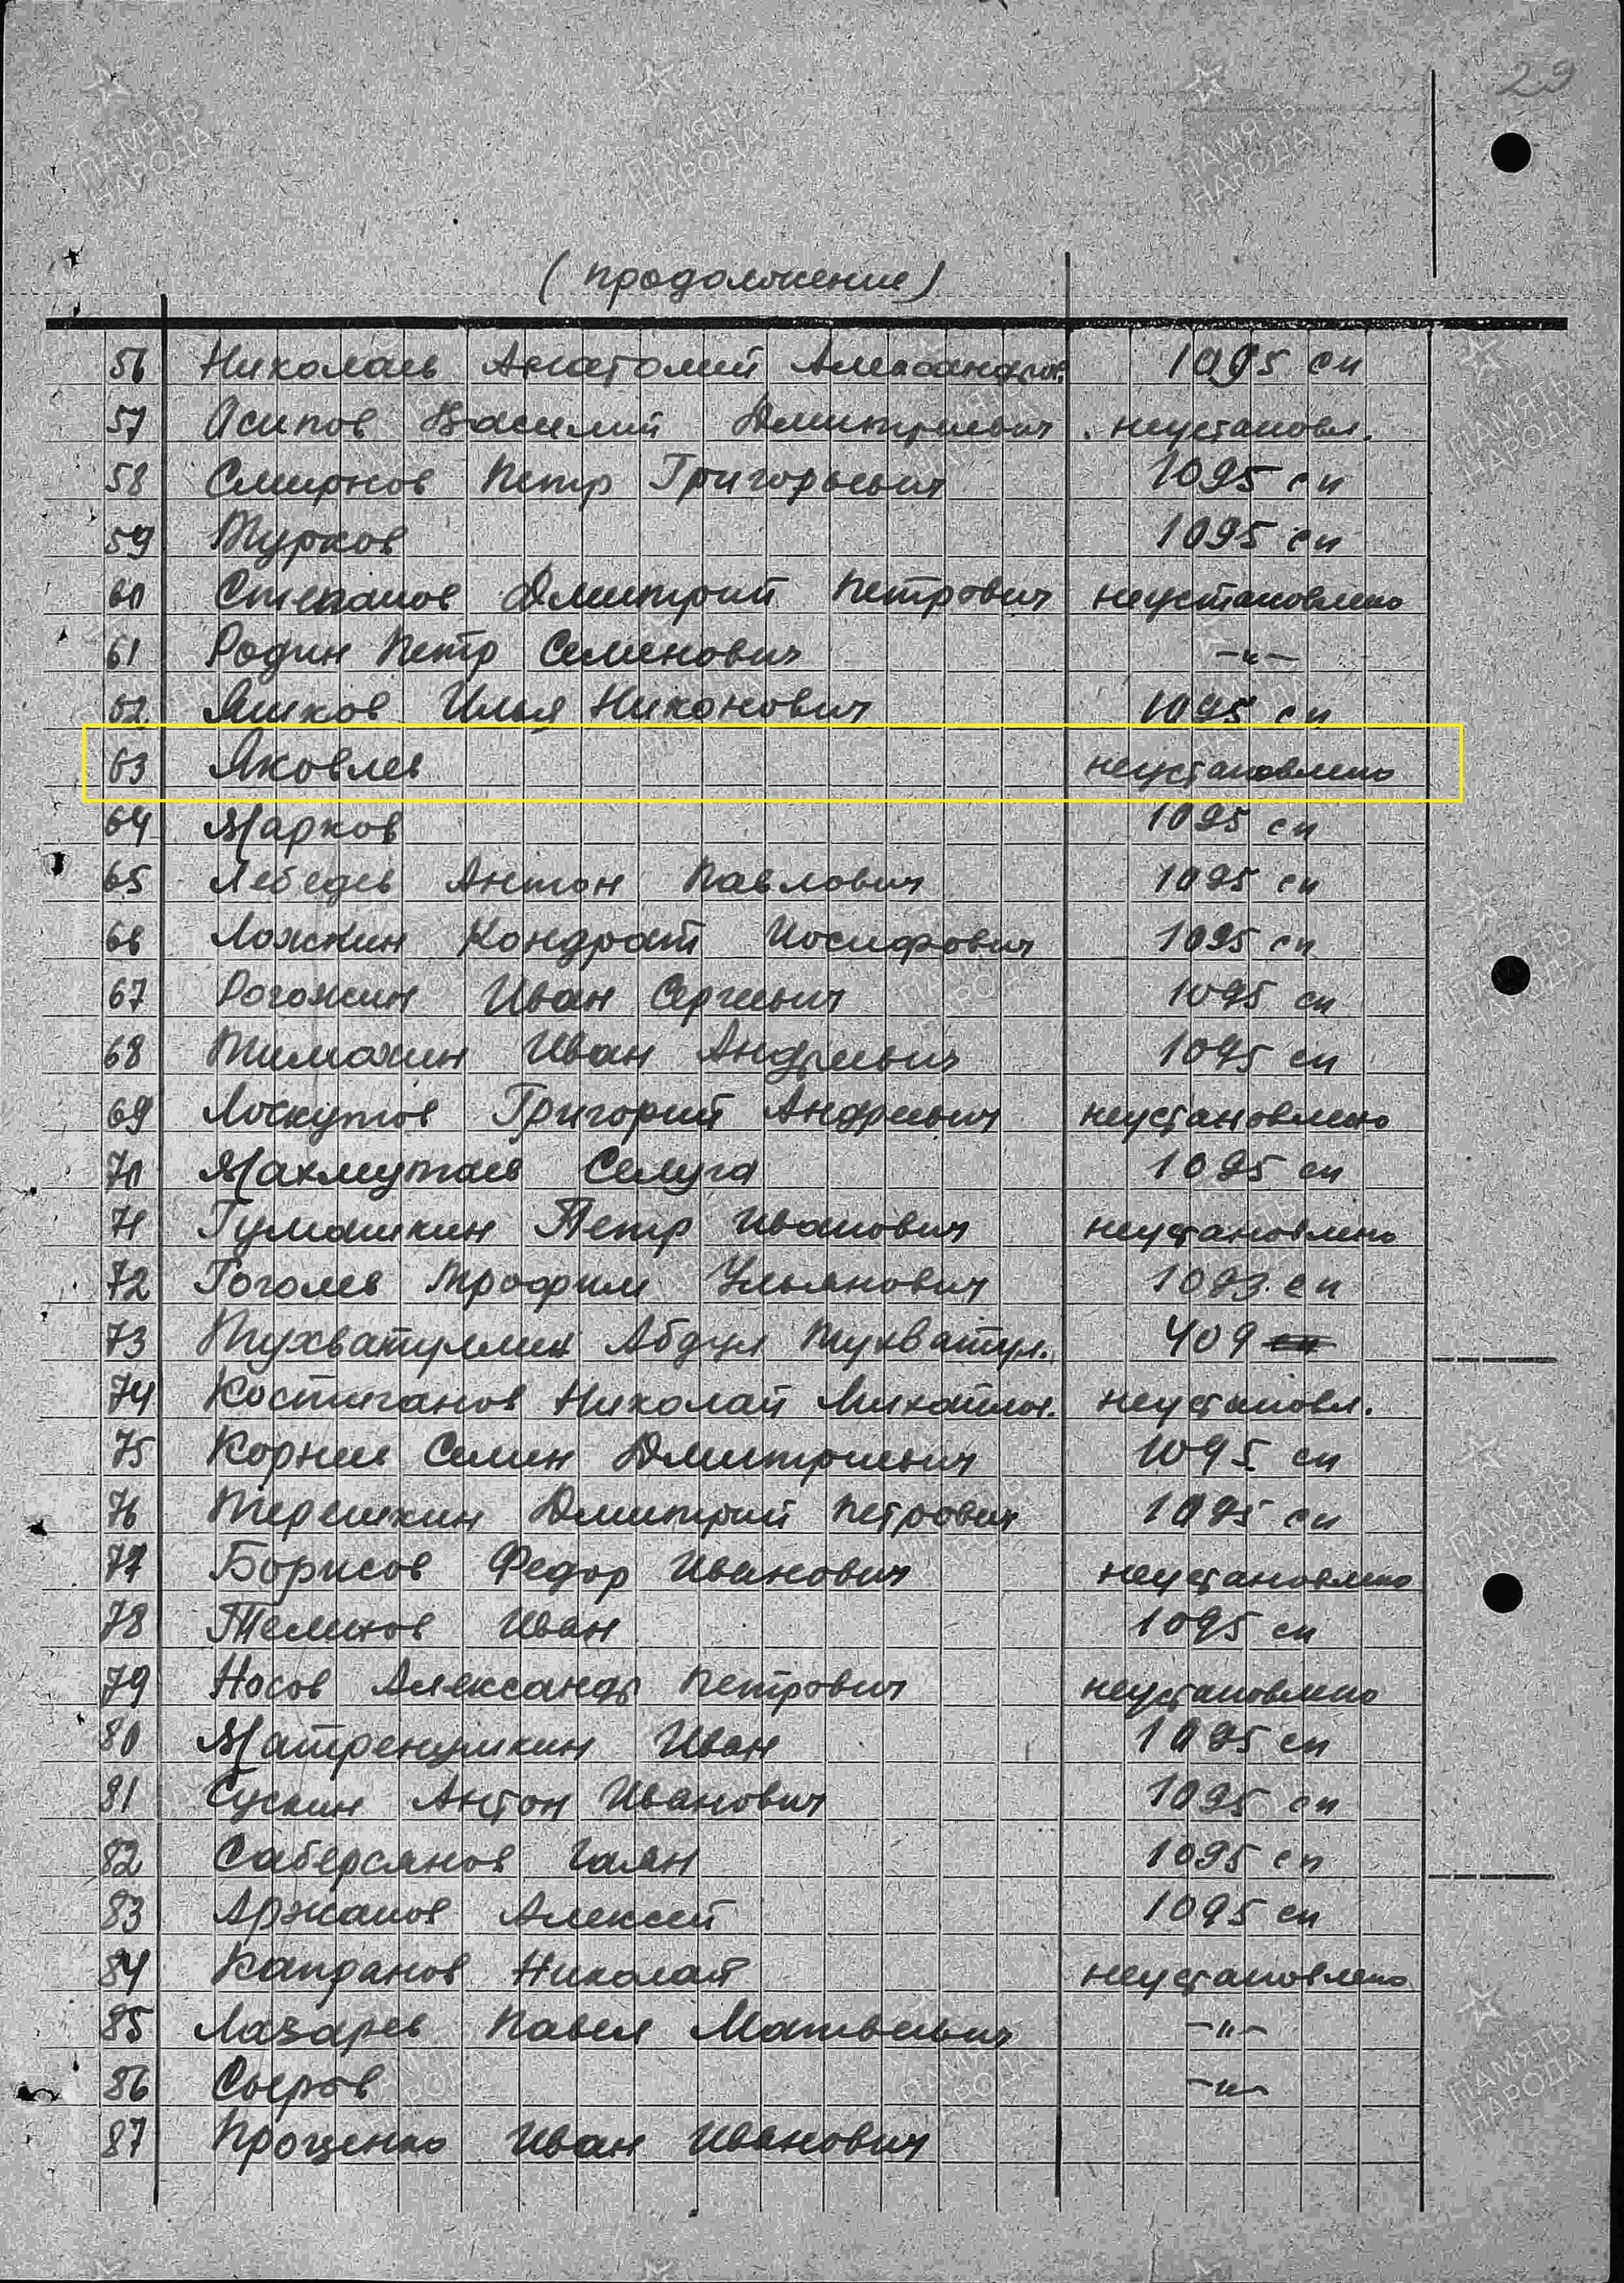 29
(продолжение)
56 Николаев Анатолий Александров. 1095 сп
57 Осипов Василий Дмитриевич неустановл.
58 Смирнов Петр Григорьевич 1095 сп
59 Турков 1095 сп
60 Степанов Дмитрий Петрович неустановлено
61 Родин Петр Семенович —"—
62 Яшков Илья Никонович 1095 сп
63 Яковлев неустановлено
64 Марков 1095 сп
65 Лебедев Антон Павлович 1095 сп
66 Ложкин Кондрат Иосифович 1095 сп
67 Рогожин Иван Сергеевич 1095 сп
68 Тимохин Иван Андреевич 1095 сп
69 Лоскутов Григорий Андреевич неустановлено
70 Махмутаев 1095 сп
71 Гумашкин Петр Иванович неустановлено
72 Гоголев Трофим Ульянович 1093 сп
73 Тухватуллин Абдул Тухватул. 409
74 Костиганов Николай Михайлов. неустановл.
75 Корнев Семен Дмитриевич 1095 сп
76 Терешкин Дмитрий Петрович 1095 сп
77 Борисов Федор Иванович неустановлено
78 Телинов Иван 1095 сп
79 Носов Александр Петрович неустановлено
80 Матренушкин Иван 1095 сп
81 Сускин Антон Иванович 1095 сп
82 Саберсянов Гаян 1095 сп
83 Аржанов Алексей 1095 сп
84 Капранов Николай неустановлено
85 Лазарев Павел Матвеевич —"—
86 Сыров —"—
87 Проценко Иван Иванович
ПАМЯТЬ
НАРОДА